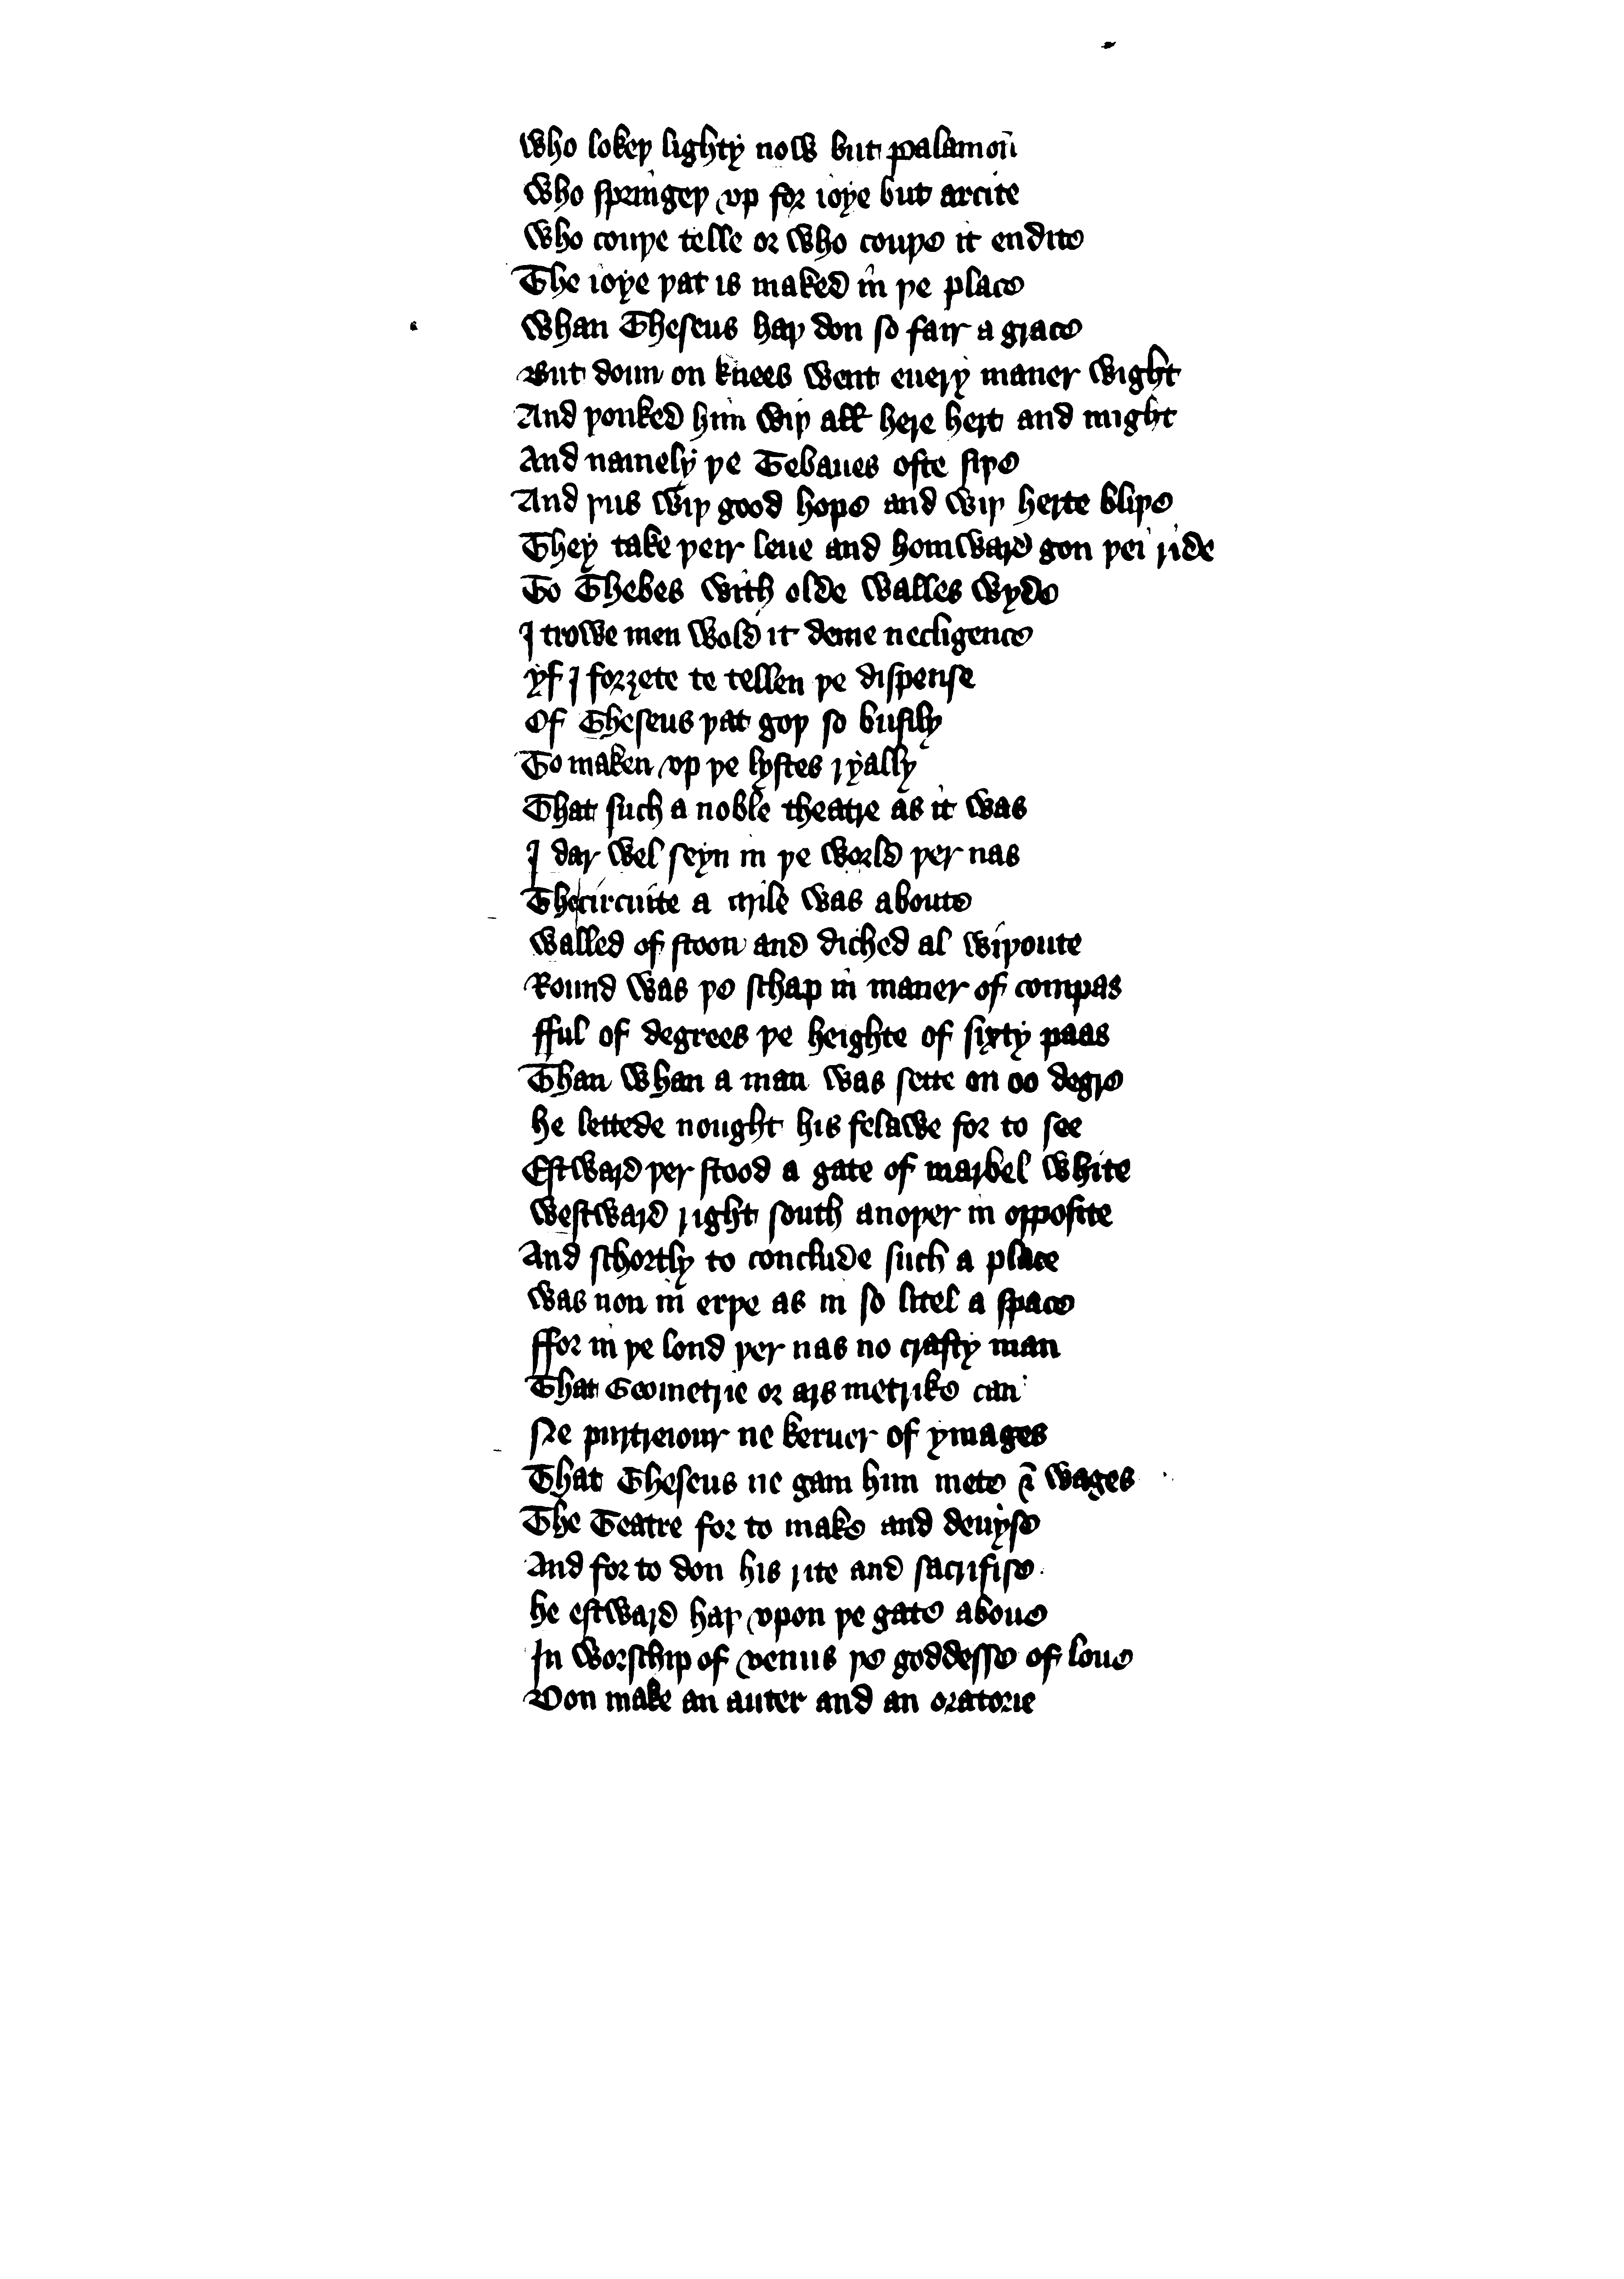 Who lokeþ lighty now but palamon̄
Who springeþ vp for ioye but arcite
Who couþe telle or who couþe it endite
The ioye þat is maked in þe place
Whan Theseus haþ don so fair a grace
But doun on knees went euery maner wight
And þonked him wiþ all here hert and might
And namely þe Tebanes ofte siþe
And þus wiþ good hope and wiþ herte bliþe
They take þeir leue and homward gon þei ride
To Thebes with olde walles wyde
I trowe men wold it deme necligence
yf I forȝete te tellen þe dispense
Of Theseus þat goþ so busily
To maken vp þe lystes ryally
That such a noble theatre as it was
I dar wel seyn in þe world þer nas
The circuite a myle was aboute
walled of stoon and diched al wiþoute
Round was þe schap in maner of compas
fful of degrees þe heighte of sixty paas
Than whan a man was sette on oo degre
he lettede nought his felawe for to see
Estward þer stood a gate of marbel white
westward right south anoþer in opposite
And schortly to conclude such a place
was non in erþe as in so litel a space
ffor in þe lond þer nas no crafty man
That Geometrie or ars metrike can
Ne purtreiour ne keruer of ymages
That Theseus ne gam him mete & wages
The Teatre for to make and deuyse
And for to don his rite and sacrifise
he estward haþ vpon þe gate aboue
In worschip of venus þe goddesse of loue
Don make an auter and an oratorie